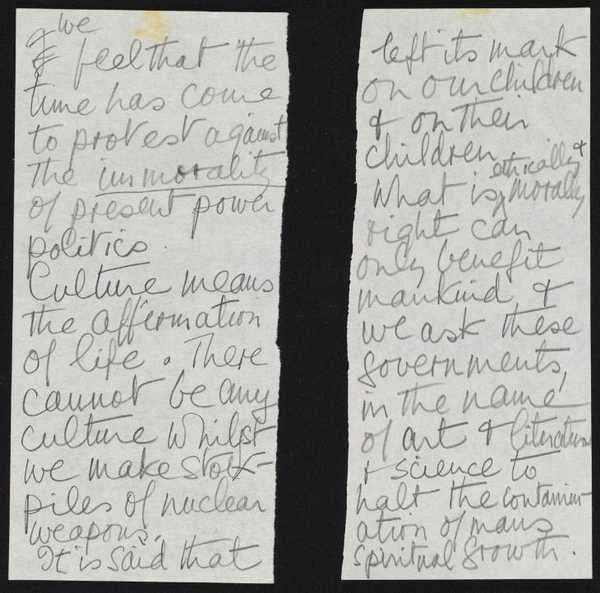 & we
feel that the
time has come
to protest against
the immorality
of present power
politics.
Culture means
the affirmation
of life. There
cannot be any
culture whilst
we make stock-
piles of nuclear
weapons.
It is said that
left its mark
on our children
& on their
children
What is ethically &
morally
right can
only benefit
mankind, &
we ask these
governments,
in the name
of art & literature
& science to
halt the contamin-
ation of mans
spiritual growth.